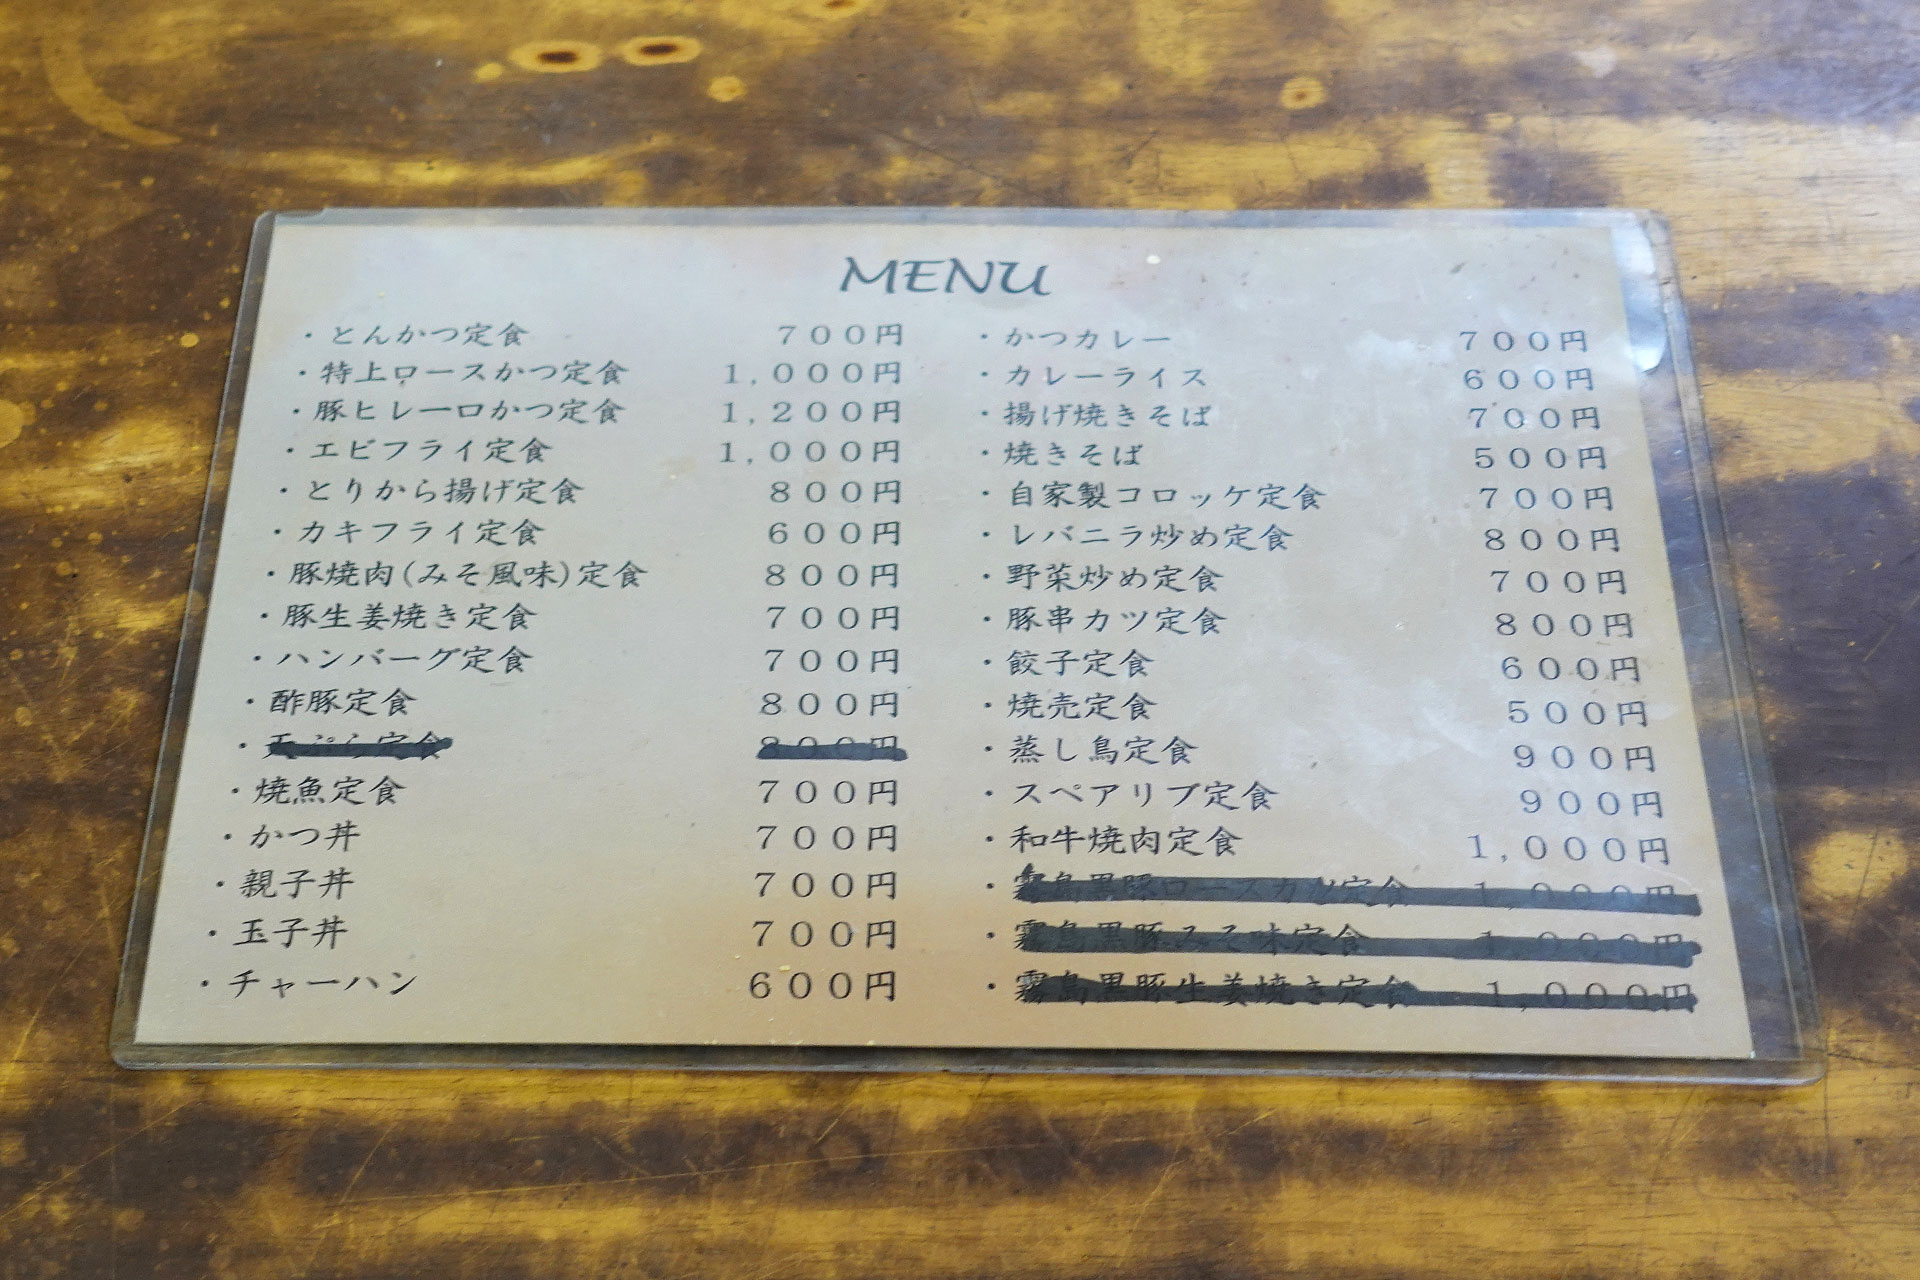 MENU
・とんかつ定食 700円
・特上ロースかつ定食 1,000円
・豚ヒレ一口かつ定食 1,200円
・エビフライ定食 1,000円
・とりから揚げ定食 800円
・カキフライ定食 600円
・豚焼肉(みそ風味)定食 800円
・豚生姜焼き定食 700円
・ハンバーグ定食 700円
・酢豚定食 800円
・天ぷら定食 800円
・焼魚定食 700円
・かつ丼 700円
・親子丼 700円
・玉子丼 700円
・チャーハン 600円
・かつカレー 700円
・カレーライス 600円
・揚げ焼きそば 700円
・焼きそば 500円
・自家製コロッケ定食 700円
・レバニラ炒め定食 800円
・野菜炒め定食 700円
・豚串カツ定食 800円
・餃子定食 600円
・焼売定食 500円
・蒸し鳥定食 900円
・スペアリブ定食 900円
・和牛焼肉定食 1,000円
・霧島黒豚ロースカツ定食 1,000円
・霧島黒豚みそ味定食 1,000円
・霧島黒豚生姜焼き定食 1,000円